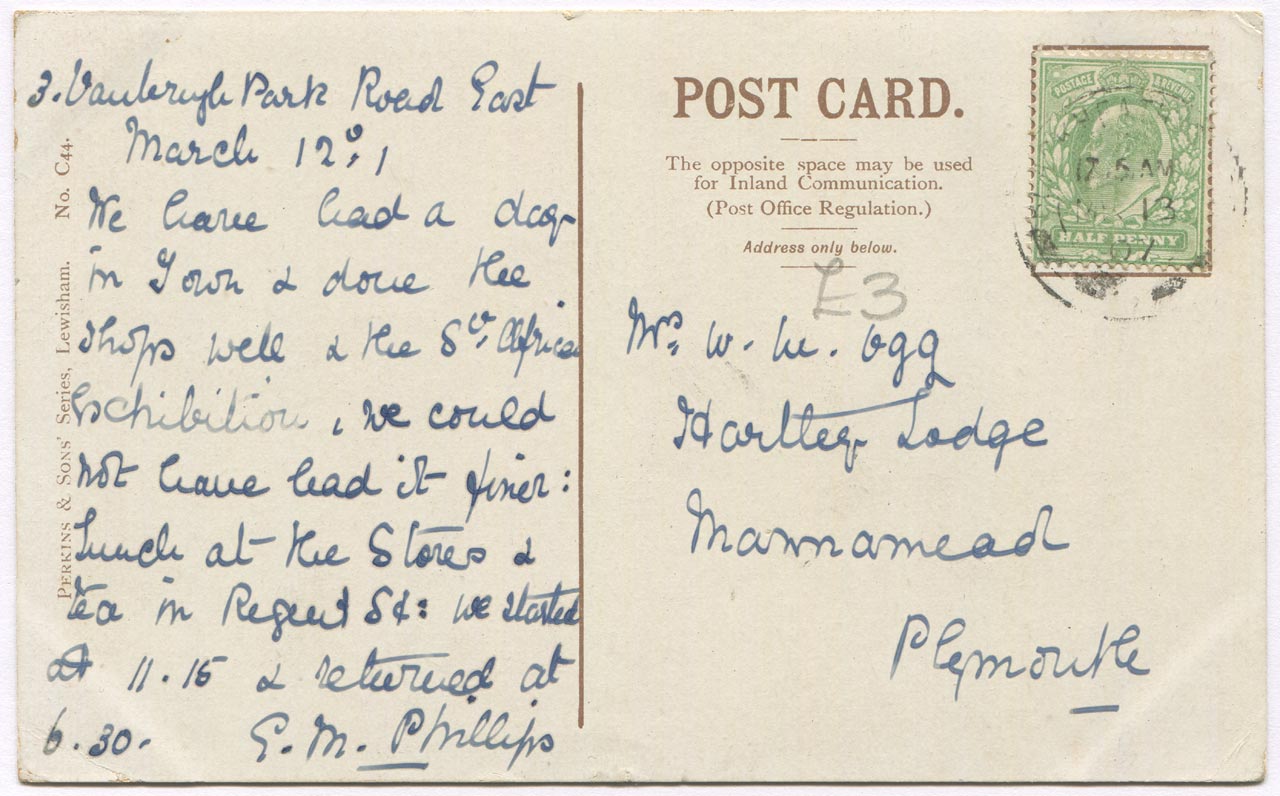 3. Vanbrugh Park Road East
March 12º.
We have had a day
in Town & done the
shops well & the Sth African
Exhibition, we could
not have had it finer:
Lunch at the Stores &
tea in Regent St: we started
at 11.15 & returned at
6.30.
E. M. Phillips
PERKINS & SONS' Series, Lewisham. No. C44.
POST CARD.
The opposite space may be used
for Inland Communication.
(Post Office Regulation.)
Address only below.
£3
Mrs. W. M. Ogg
Hartley Lodge
Mannamead
Plymouth
POSTAGE & REVENUE
HALF PENNY
12.15 AM
13
07